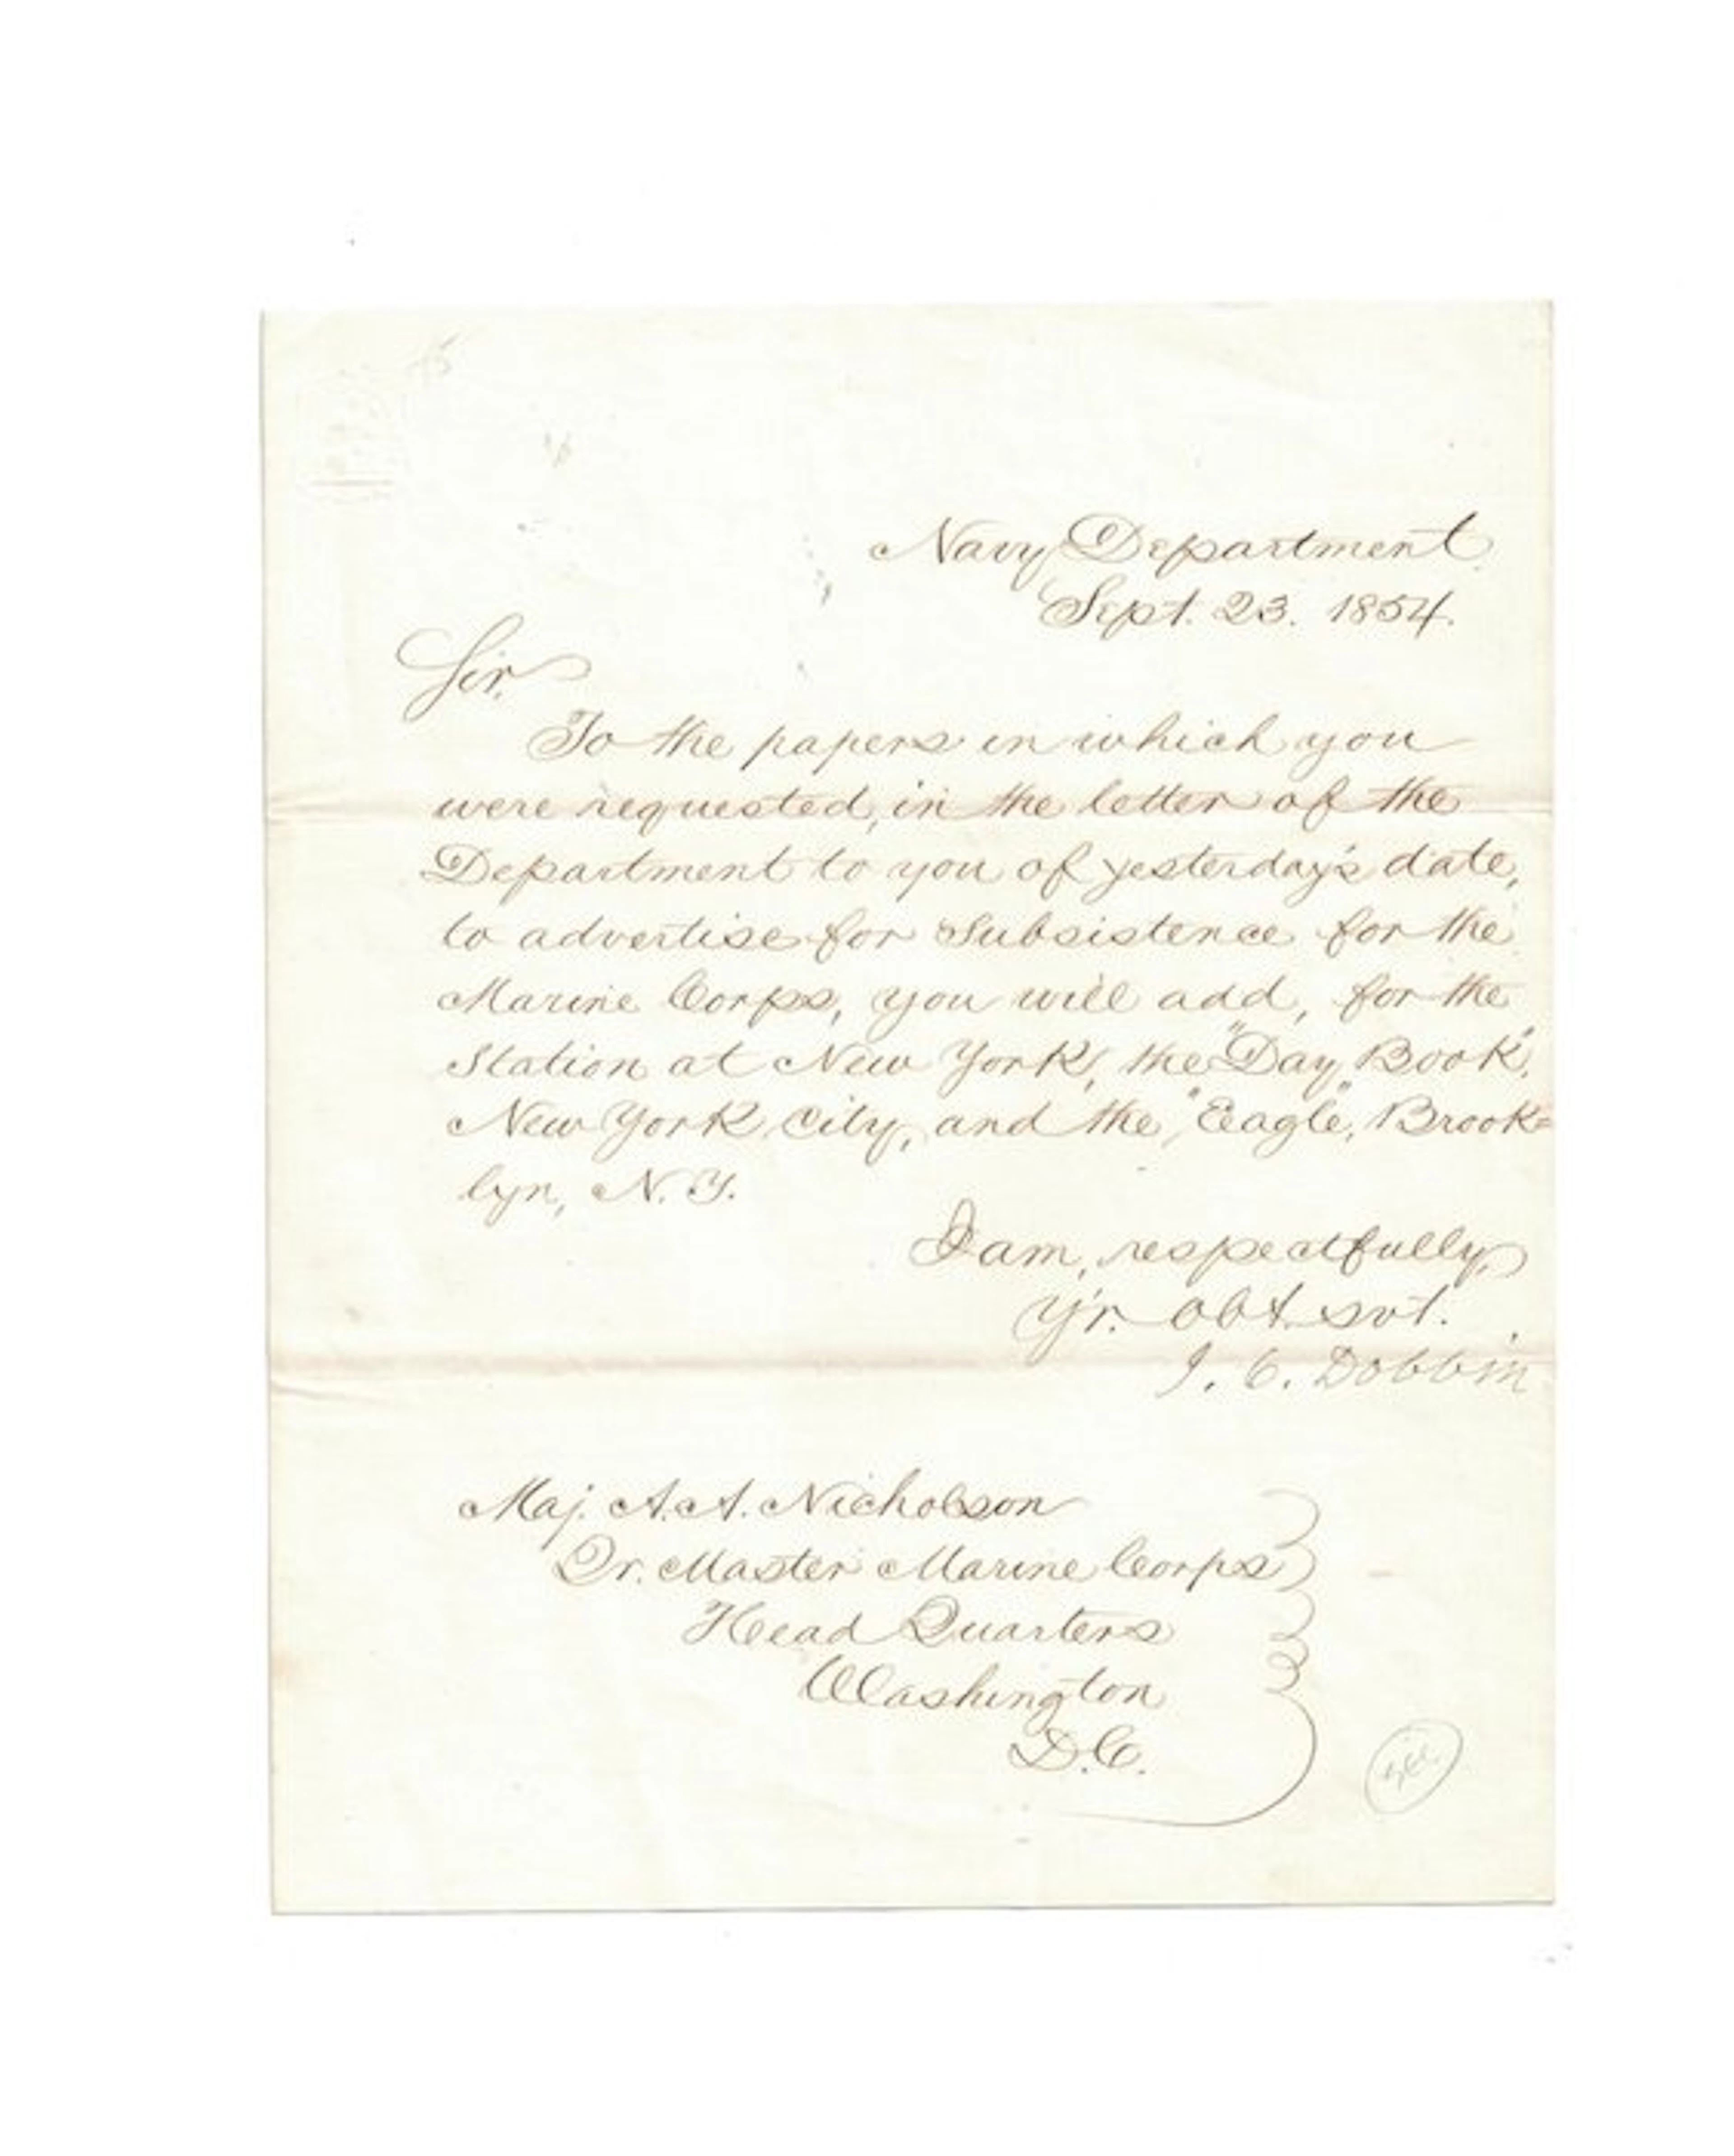 Navy Department.
Sept. 23. 1854.
Sir,
To the papers in which you
were requested, in the letter of the
Department to you of yesterday's date,
to advertise for Subsistence for the
Marine Corps, you will add, for the
Station at New York, the "Day Book",
New York City, and the "Eagle", Brook=
lyn, N.Y.
I am, respectfully,
Yr. obt. svt.
J. C. Dobbin
Maj. A. A. Nicholson
Qr. Master Marine Corps
Head Quarters
Washington
D.C.